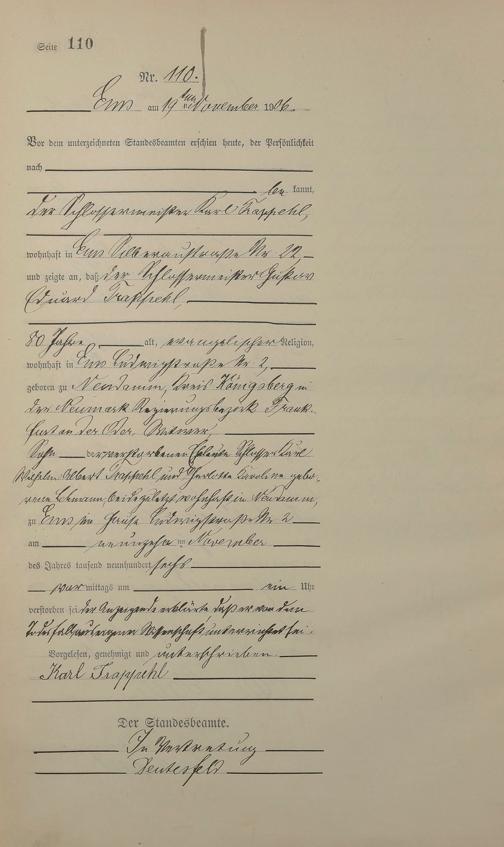 Seite 110
Nr. 110.
Ems am 19ten November 1906.
Vor dem unterzeichneten Standesbeamten erschien heute, der Persönlichkeit
nach
be kannt,
der Schlossermeister Karl Trappehl,
wohnhaft in Ems Silberaustraße Nr 22,
und zeigte an, daß der Schlossermeister Gustav
Eduard Trappehl,
80 Jahre alt, evangelischer Religion,
wohnhaft in Ems Ludwigstraße Nr 2,
geboren zu Neudamm, Kreis Königsberg in
der Neumark Regierungsbezirk Frank-
furt an der Oder, Witwer,
Sohn der verstorbenen Eheleute Schlosser Karl
Wilhelm Albert Trappehl und Charlotte Karoline gebo-
rene Lehmann, beide zuletzt wohnhaft in Neudamm,
zu Ems im Hause Ludwigstraße Nr 2
am neunzehn ten November
des Jahres tausend neunhundert sechs
vor mittags um ein Uhr
verstorben sei. der Anzeigende erklärte daß er von dem
Todesfall aus eigener Wissenschaft unterrichtet sei.
Vorgelesen, genehmigt und unterschrieben
Karl Trappehl
Der Standesbeamte.
In Vertretung